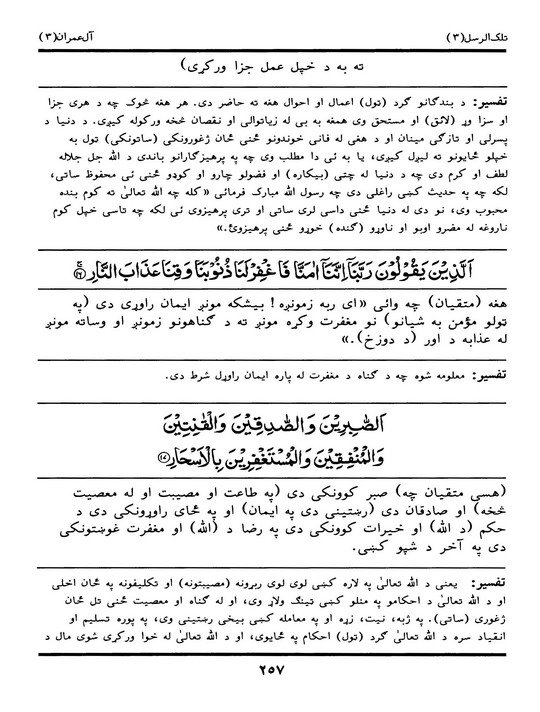 تلک الرسل(۳) آل عمران(۳)
ته به د خپل عمل جزا ورکړی)
تفسیر: د بندګانو ګرد (ټول) اعمال او احوال هغه ته حاضر دی. هر هغه څوک چه د هری جزا
او سزا وړ (لائق) او مستحق وی همغه به بی له زیاتوالی او نقصان څخه ورکوله کیږی. د دنیا د
پسرلی او تازګی مینان او د هغی له فانی خوندونو څنی ځان ژغورونکی (ساتونکی) ټول به
خپلو ځایونو ته لیږل کیږی، یا به ئی دا مطلب وی چه په پرهیزګارانو باندی د الله جل جلاله
لطف او کرم دی چه د دنیا له چتی (بیکاره) او فضولو چارو او کوډو څنی ئی محفوظ ساتی،
لکه چه په حدیث کښی راغلی دی چه رسول الله مبارک فرمائی «کله چه الله تعالیٰ ته کوم بنده
محبوب وی، نو دی له دنیا څنی داسی لری ساتی او تری پرهیزوی ئی لکه چه تاسی خپل کوم
ناروغه له مضرو اوبو او ناوړو (ګنده) خوړو څنی پرهیزوئ.»
اَلَّذِیْنَ یَقُوْلُوْنَ رَبَّنَآ اِنَّنَآ اٰمَنَّا فَاغْفِرْ لَنَا ذُنُوْبَنَا وَقِنَا عَذَابَ النَّارِ ۚ﴿۱۶﴾
هغه (متقیان) چه وائی «ای ربه زمونږه! بیشکه مونږ ایمان راوړی دی (په
ټولو مؤمن به شیانو) نو مغفرت وکړه مونږ ته د ګناهونو زمونږ او وساته مونږ
له عذابه د اور (د دوزخ).»
تفسیر: معلومه شوه چه د ګناه د مغفرت له پاره ایمان راوړل شرط دی.
اَلصّٰبِرِیْنَ وَالصّٰدِقِیْنَ وَالْقٰنِتِیْنَ
وَالْمُنْفِقِیْنَ وَالْمُسْتَغْفِرِیْنَ بِالْاَسْحَارِ ﴿۱۷﴾
(هسی متقیان چه) صبر کوونکی دی (په طاعت او مصیبت او له معصیت
څخه) او صادقان دی (رښتینی دی په ایمان) او په ځای راوړونکی دی د
حکم (د الله) او خیرات کوونکی دی په رضا د (الله) او مغفرت غوښتونکی
دی په آخر د شپو کښی.
تفسیر: یعنی د الله تعالیٰ په لاره کښی لوی لوی ربړونه (مصیبتونه) او تکلیفونه په ځان اخلی
او د الله تعالیٰ د احکامو په منلو کښی ټینګ ولاړ وی، او له ګناه او معصیت څنی تل ځان
ژغوری (ساتی). په ژبه، نیت، زړه او په معامله کښی بیخی رښتینی وی، په پوره تسلیم او
انقیاد سره د الله تعالیٰ ګرد (ټول) احکام په ځایوی، او د الله تعالیٰ له خوا ورکړی شوی مال د
۲۵۷